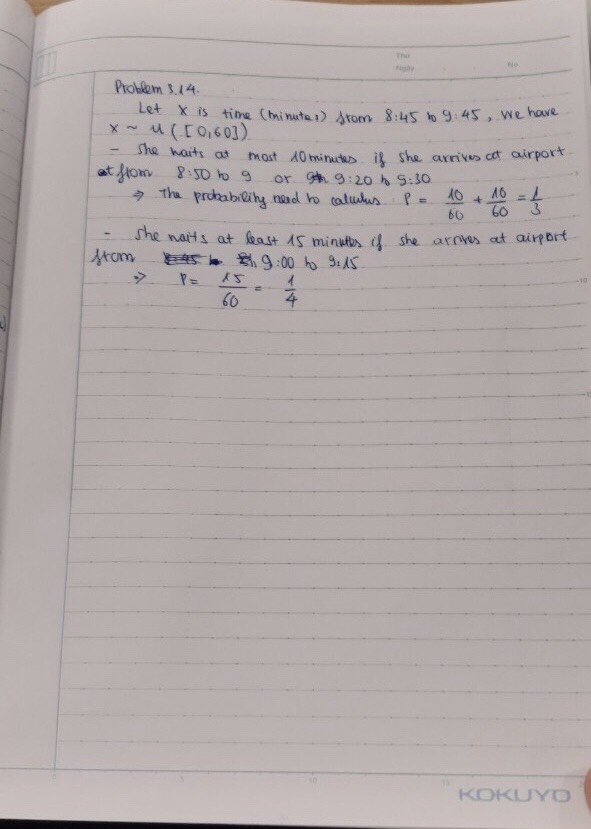 Thứ
Ngày
No
Problem 3.14.
Let X is time (minutes) from 8:45 to 9:45, we have
X ~ U([0,60])
- She waits at most 10 minutes if she arrives at airport
from 8:50 to 9 or 9:20 to 9:30
⇒ The probability need to calculus P = 10/60 + 10/60 = 1/3
- She waits at least 15 minutes if she arrives at airport
from 9:00 to 9:15
⇒ P = 15/60 = 1/4
KOKUYO